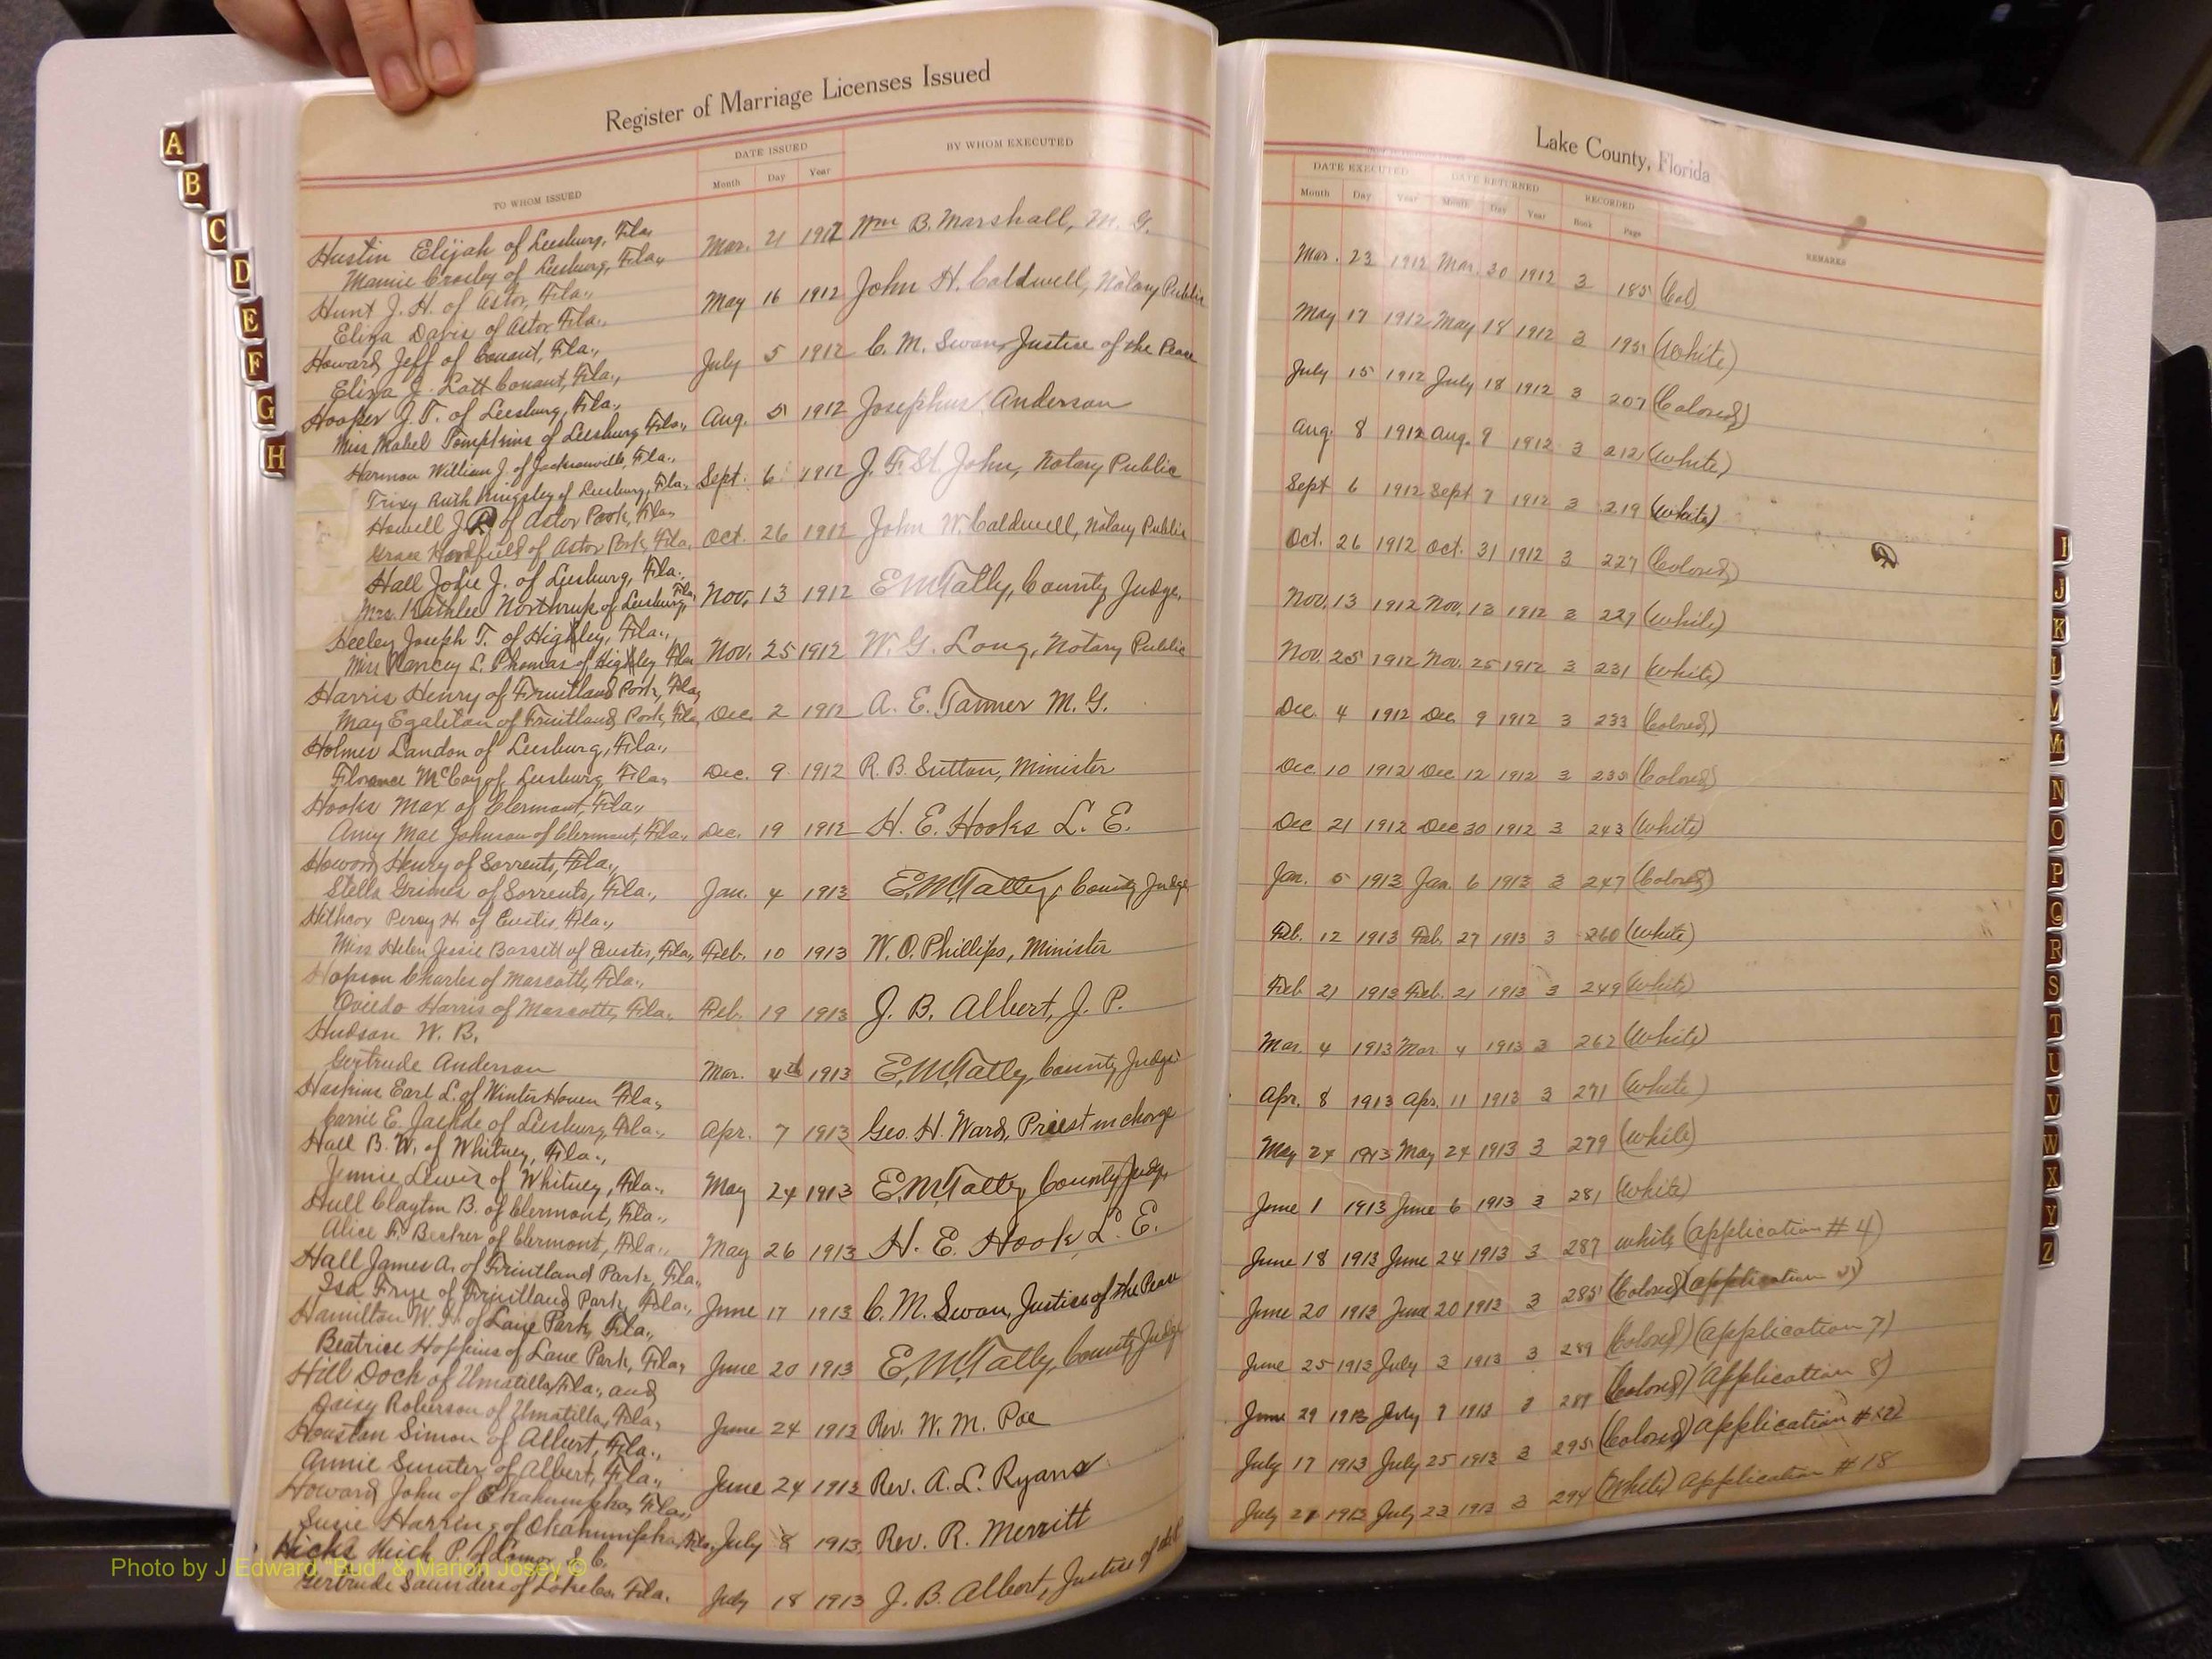 Register of Marriage Licenses Issued
TO WHOM ISSUED
DATE ISSUED
Month Day Year
BY WHOM EXECUTED
Hustin Elijah of Leesburg, Fla.
Mamie Crosley of Leesburg, Fla.,
Mar. 21 1912 Wm B. Marshall, M. G.
Hunt J. H. of Astor, Fla.,
Eliza Davis of Astor, Fla.,
May 16 1912 John H. Caldwell, Notary Public
Howard Jeff of Conant, Fla.,
Eliza J. Lott Conant, Fla.,
July 5 1912 C. M. Swan, Justice of the Peace
Hooper G. T. of Leesburg, Fla.,
Miss Mabel Tompkins of Leesburg Fla.,
Aug. 5 1912 Josephus Anderson
Harmon William J. of Jacksonville, Fla.,
Trixy Ruth Kingsley of Leesburg, Fla.,
Sept. 6 1912 J. F. St. John, Notary Public
Howell J. R. of Astor Park, Fla.
Grace of Astor Park, Fla.
Oct. 26 1912 John W. Caldwell, Notary Public
Hall John J. of Leesburg, Fla.,
Mrs. Northrup of Leesburg, Fla.
Nov. 13 1912 E M Tally, County Judge.
Seeley Joseph T. of Highley, Fla.,
Miss Nancy L. Thomas of Highley Fla
Nov. 25 1912 W. G. Long, Notary Public
Harris Henry of Fruitland Park, Fla,
May of Fruitland Park, Fla,
Dec. 2 1912 A. E. Tanner M. G.
Holmes Landon of Leesburg, Fla.,
Florance McCoy of Leesburg, Fla,
Dec. 9 1912 R. B. Sutton, Minister
Hooks Max of Clermont, Fla.,
Amy Mae Johnson of Clermont, Fla.,
Dec. 19 1912 H. E. Hooks L. E.
Howard Henry of Sorrento, Fla.,
Stella Grimes of Sorrento, Fla.,
Jan. 4 1913 E. M. Tally, County Judge
Hithcox Percy H. of Eustis, Fla.,
Miss Helen Jessie Bassett of Eustis, Fla.,
Feb. 10 1913 W. O. Phillips, Minister
Hopson Charles of Mascotte, Fla.,
Oviedo Harris of Mascotte, Fla.,
Feb. 19 1913 J. B. Albert, J. P.
Hudson W. B.
Gertrude Anderson
Mar. 4th 1913 E. M. Tally, County Judge
Haskins Earl L. of Winter Haven Fla,
Carrie E. of Leesburg, Fla.,
Apr. 7 1913 Geo. H. Ward, Priest in charge
Hall B. W. of Whitney, Fla.,
Jennie Lewis of Whitney, Fla.,
May 24 1913 E. M. Tally County Judge
Hull Clayton B. of Clermont, Fla.,
Alice F. Becker of Clermont, Fla.,
May 26 1913 H. E. Hook, L. E.
Hall James A. of Fruitland Park, Fla.,
Isa Frye of Fruitland Park, Fla.,
June 17 1913 C. M. Swan, Justice of the Peace
Hamilton W. H. of Lane Park, Fla.,
Beatrice Hopkins of Lane Park, Fla,
June 20 1913 E. M. Tally, County Judge
Hill Dock of Umatilla, Fla., and
Daisy Roberson of Umatilla, Fla,
June 24 1913 Rev. W. M. Poe
Houston Simon of Albert, Fla.,
Annie Sumter of Albert, Fla.,
June 24 1913 Rev. A. L. Ryans
Howard John of Okahumpka, Fla.,
Susie of Okahumpka, Fla.,
July 8 1913, Rev. R. Merritt
Hicks P. of S. C.
Gertrude Saunders of Fla.
July 18 1913 J. B. Albert, Justice of
Lake County, Florida
DATE EXECUTED DATE RETURNED RECORDED
Month Day Year Month Day Year Book Page
REMARKS
Mar. 23 1912 Mar. 30 1912 3 185 (Col)
May 17 1912 May 18 1912 3 195 (White)
July 15 1912 July 18 1912 3 207 (Colored)
Aug. 8 1912 Aug. 9 1912 3 212 (White)
Sept 6 1912 Sept 7 1912 3 219 (White)
Oct. 26 1912 Oct. 31 1912 3 227 (Colored)
Nov. 13 1912 Nov. 13 1912 3 229 (White)
Nov. 25 1912 Nov. 25 1912 3 231 (White)
Dec. 4 1912 Dec. 9 1912 3 233 (Colored)
Dec. 10 1912 Dec 12 1912 3 235 (Colored)
Dec 21 1912 Dec 30 1912 3 243 (White)
Jan. 5 1913 Jan. 6 1913 3 247 (Colored)
Feb. 12 1913 Feb. 27 1913 3 260 (White)
Feb 21 1913 Feb. 21 1913 3 249 (White)
Mar. 4 1913 Mar. 4 1913 3 262 (White)
Apr. 8 1913 Apr. 11 1913 3 271 (White)
May 24 1913 May 24 1913 3 279 (White)
June 1 1913 June 6 1913 3 281 (White)
June 18 1913 June 24 1913 3 287 White (Application # 4)
June 20 1913 June 20 1913 3 285 (Colored) (Application 5)
June 25 1913 July 3 1913 3 289 (Colored) (Application 7)
June 29 1913 July 9 1913 3 289 (Colored) (Application 8)
July 17 1913 July 25 1913 3 295 (Colored) Application #
July 21 1913 July 23 1913 3 294 (White) Application # 18
A
B
C
D
E
F
G
H
I
J
K
L
M
Mc
N
O
P
Q
R
S
T
U
V
W
X
Y
Z
Photo by J Edward "Bud" & Marion Josey ©